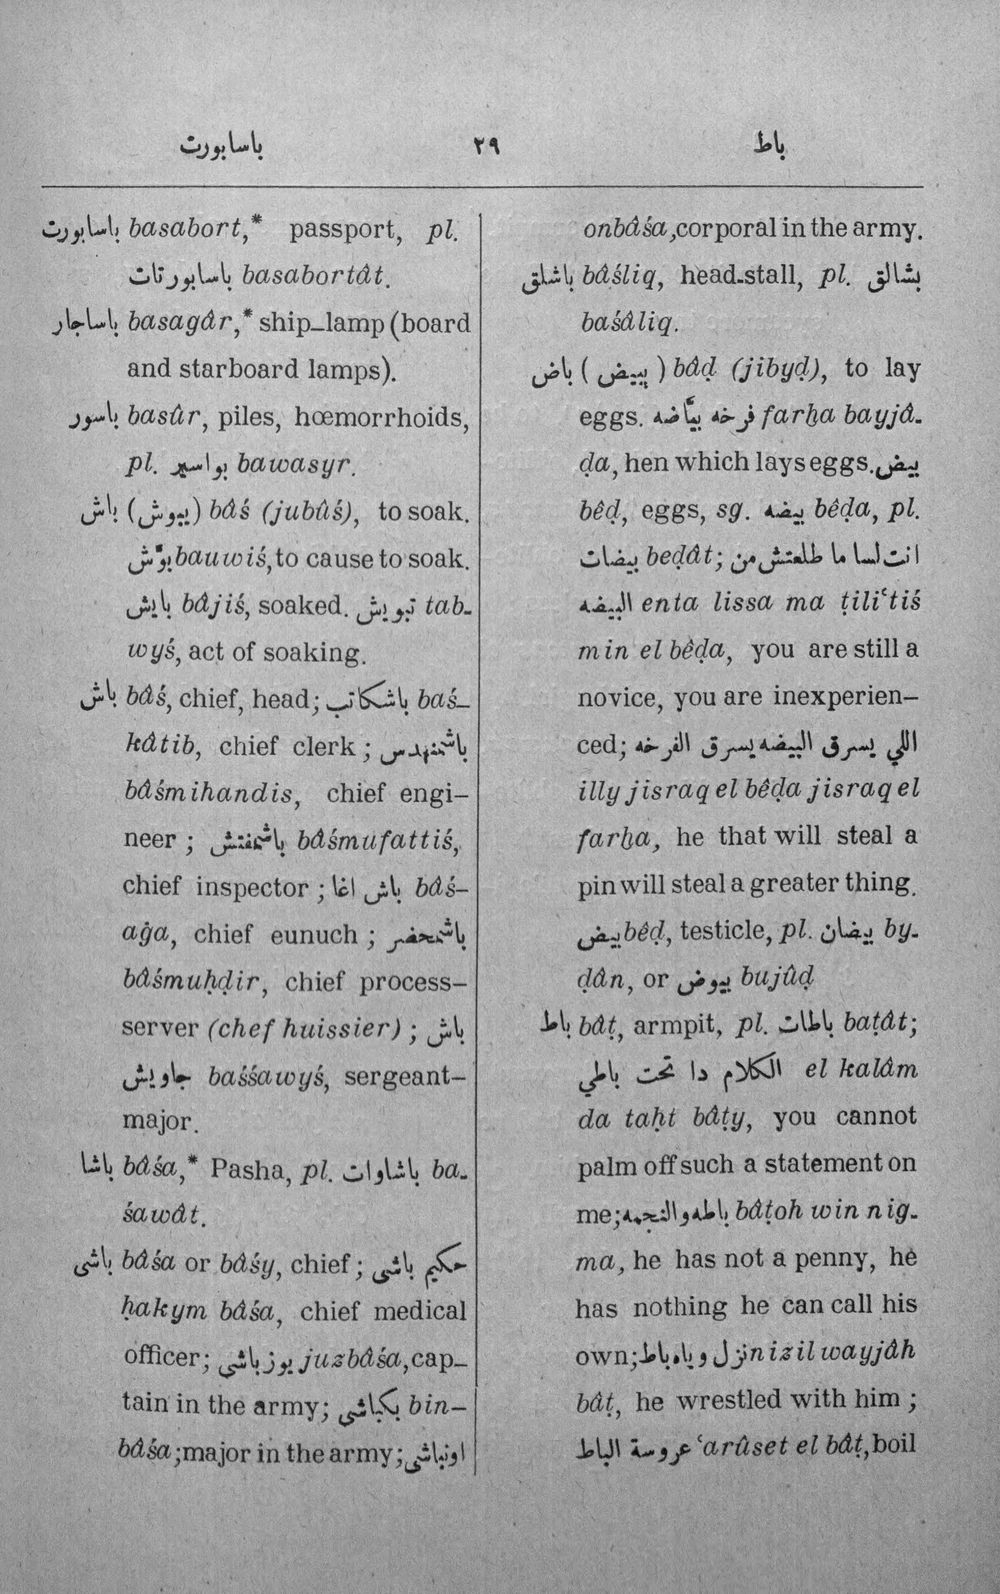 باسابورت ٢٩ باط
باسابورت basabort,* passport, pl.
باسابورتات basabortât.
باساجار basagâr,* ship-lamp (board
and starboard lamps).
باسور basûr, piles, hœmorrhoids,
pl. بواسير bawasyr.
باش (يبوش) bâś (jubûś), to soak.
بوّش bauwiś, to cause to soak.
بايش bâjiś, soaked. تبويش tab-
wyś, act of soaking.
باش bâś, chief, head; باشكاتب baś-
kâtib, chief clerk; باشمهندس
bâśmihandis, chief engi-
neer; باشمفتش bâśmufattiś,
chief inspector; باش اغا bâś-
aġa, chief eunuch; باشمحضر
bâśmuḥḍir, chief process-
server (chef huissier); باش
جاويش baśśawyś, sergeant-
major.
باشا bâśa,* Pasha, pl. باشاوات ba-
śawât.
باشى bâśa or bâśy, chief; حكيم باشى
ḥakym bâśa, chief medical
officer; يوزباشى juzbâśa, cap-
tain in the army; بكباشى bin-
bâśa; major in the army; اونباشى
onbâśa, corporal in the army.
باشلق bâśliq, head-stall, pl. بشالق
baśâliq.
باض (يبيض) bâḍ (jibyḍ), to lay
eggs. فرخه بيّاضه farḫa bayjâ-
ḍa, hen which lays eggs. بيض
bêḍ, eggs, sg. بيضه bêḍa, pl.
بيضات beḍât; انت لسا ما طلعتش من
البيضه enta lissa ma ṭiliʿtiś
min el bêḍa, you are still a
novice, you are inexperien-
ced; اللي يسرق البيضه يسرق الفرخه
illy jisraq el bêḍa jisraq el
farḫa, he that will steal a
pin will steal a greater thing.
بيض bêḍ, testicle, pl. بيضان by-
ḍân, or بيوض bujûḍ
باط bâṭ, armpit, pl. باطات baṭât;
الكلام دا تحت باطي el kalâm
da taḥt bâṭy, you cannot
palm off such a statement on
me; باطه والنجمه bâṭoh win nig-
ma, he has not a penny, he
has nothing he can call his
own; نزل وياه باط nizil wayjâh
bâṭ, he wrestled with him;
عروسة الباط ʿarûset el bâṭ, boil